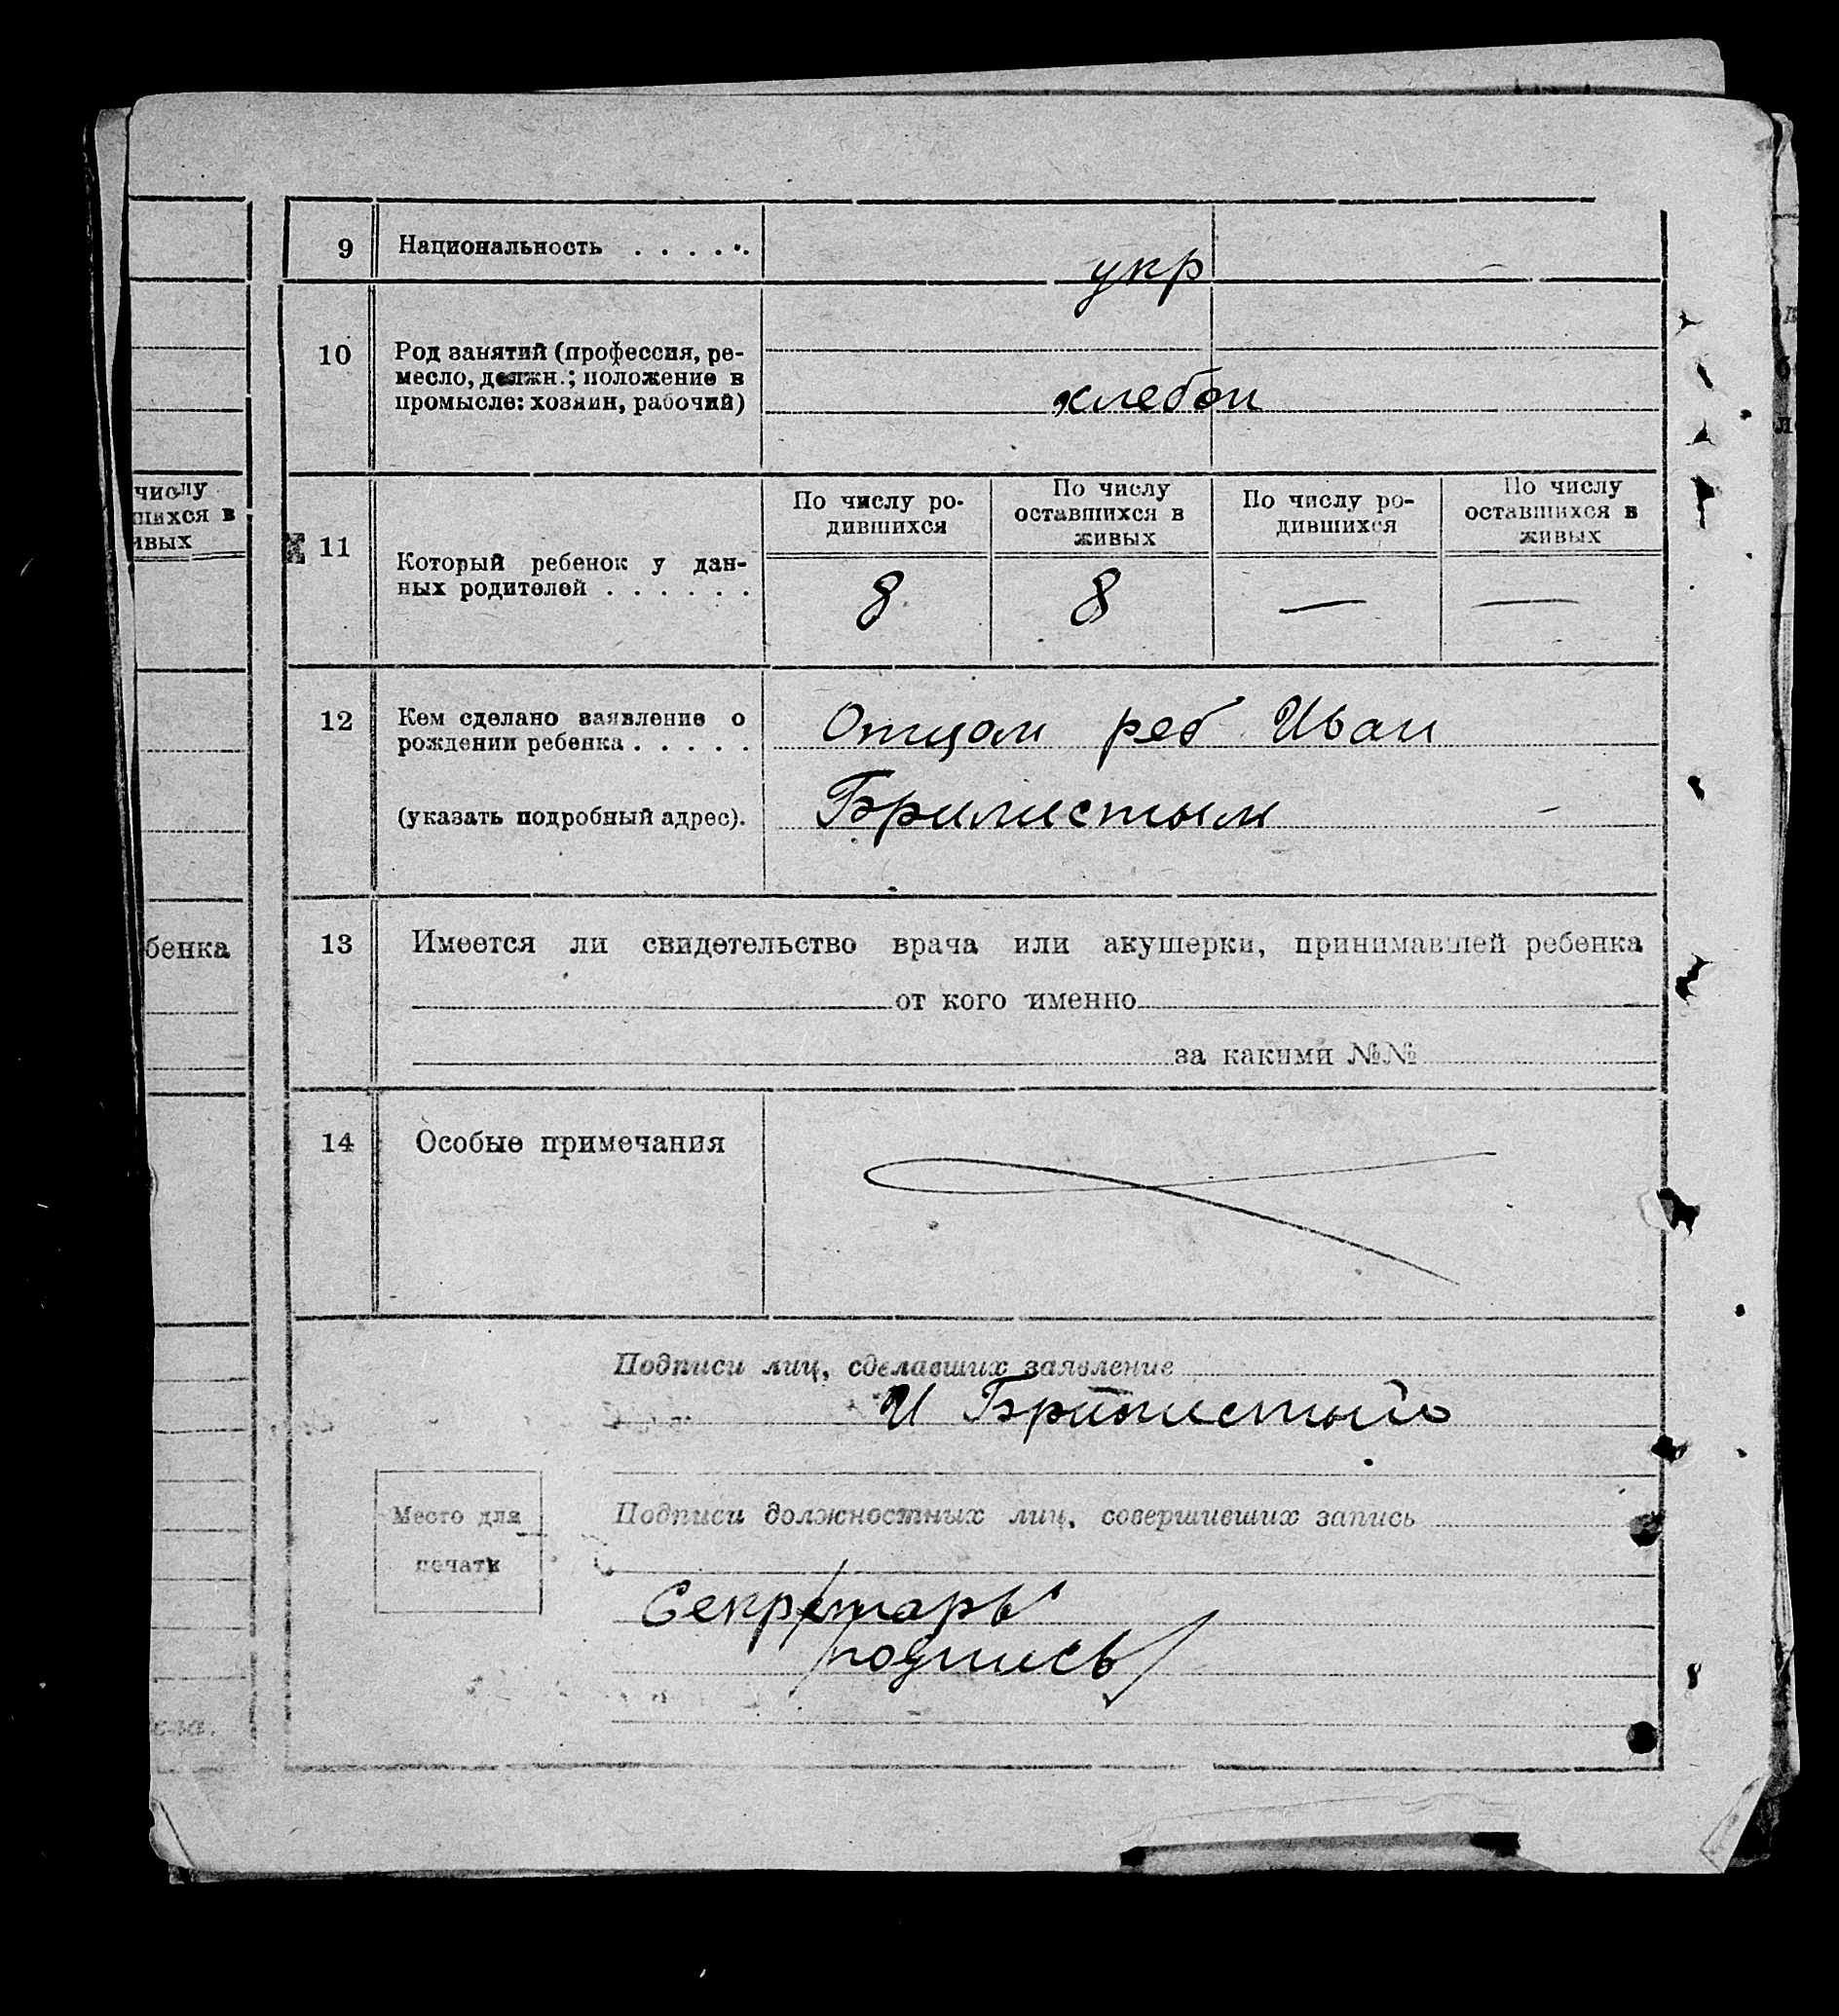 числу
шихся в
ивых
бенка
сла.
9 Национальность . . . . . .
укр
10 Род занятий (профессия, ре-
месло, должн.; положение в
промысле: хозяин, рабочий)
хлебоп
11 Который ребенок у дан-
ных родителей . . . . . .
По числу ро-
дившихся
По числу
оставшихся в
живых
По числу ро-
дившихся
По числу
оставшихся в
живых
8 8 — —
12 Кем сделано заявление о
рождении ребенка . . . . .
(указать подробный адрес).
Отцом реб Иван
13 Имеется ли свидетельство врача или акушерки, принимавшей ребенка
от кого именно
за какими №№
14 Особые примечания
Подписи лиц, сделавших заявление
И
Место для
печати
Подписи должностных лиц, совершивших запись
Секретарь
/подпись/